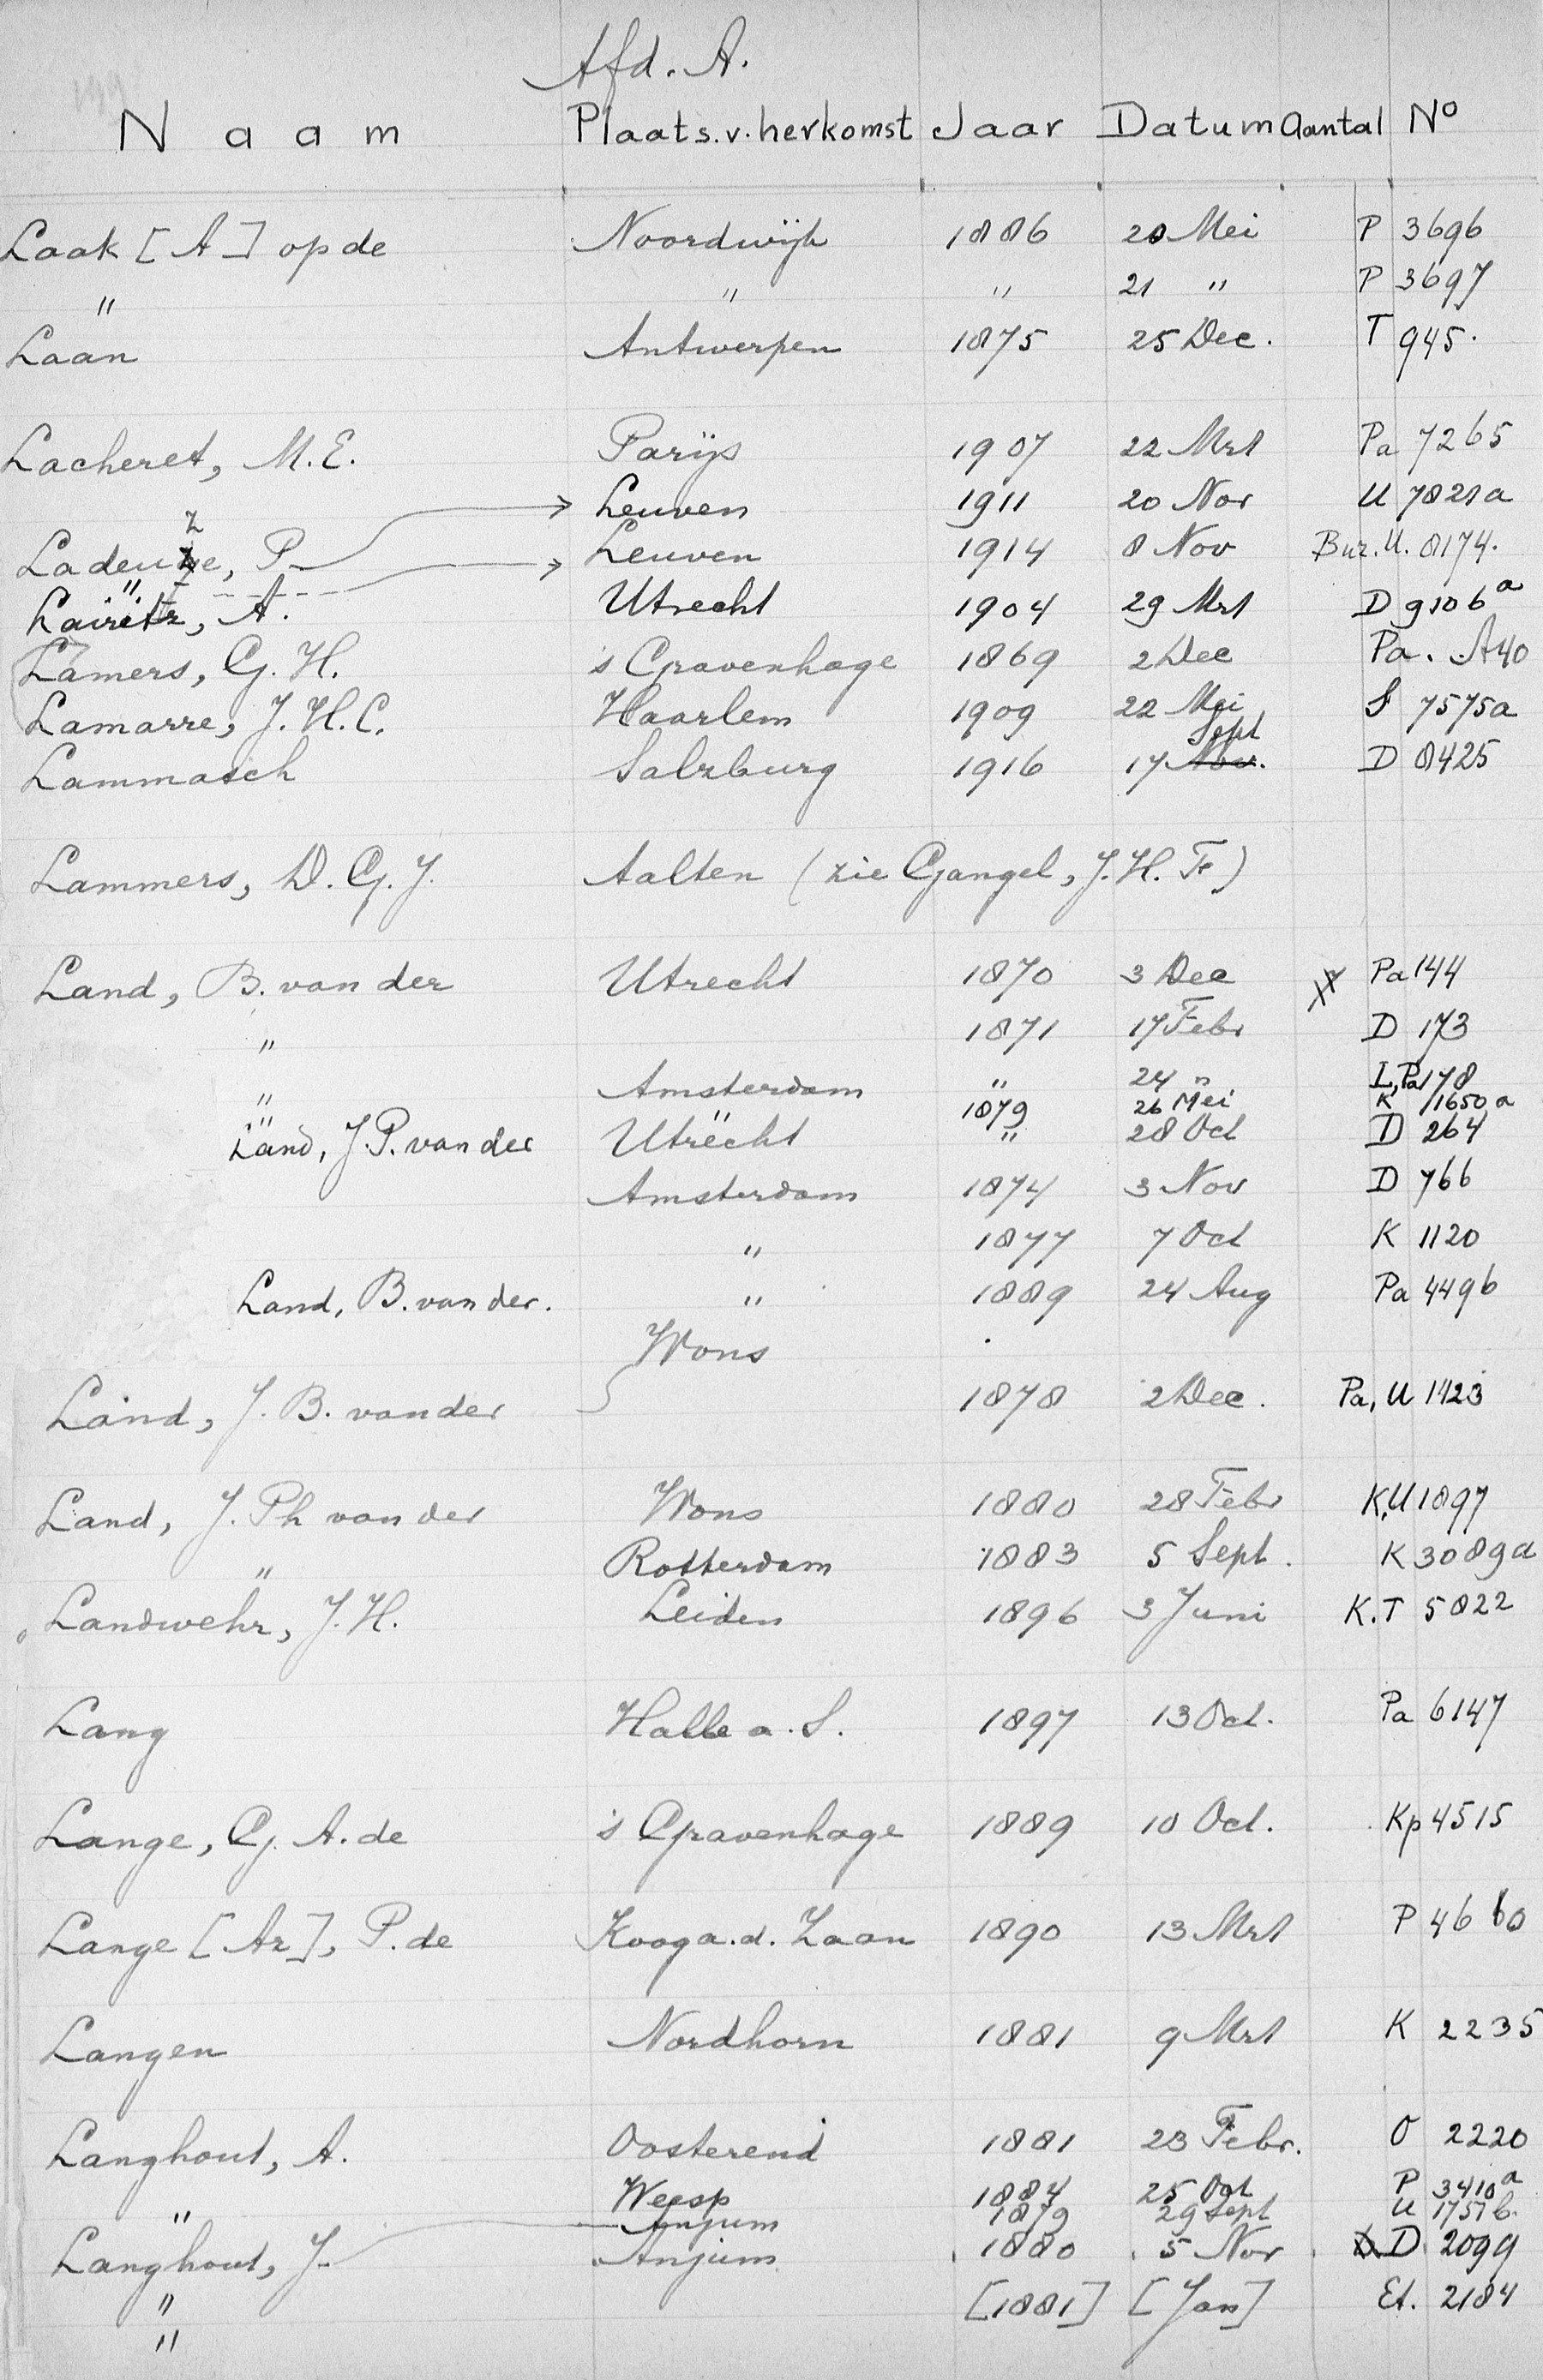 Afd. A.
Naam Plaats.v.herkomst Jaar Datum Aantal No
Laak [A] op de Noordwijk 1886 20 Mei P 3696
" " " 21 " P 3697
Laan Antwerpen 1875 25 Dec. T 945.
Lacheret, M.E. Parijs 1907 22 Mrt Pa 7265
Leuven 1911 20 Nov U 7821a
Ladeuze, P. Leuven 1914 8 Nov Bur.U. 8174.
Lairitz, A. Utrecht 1904 29 Mrt D 9106a
Lamers, G.H. 's Gravenhage 1869 2 Dec Pa. A40
Lamarre, J.H.C. Haarlem 1909 22 Mei S 7575a
Lammasch Salzburg 1916 17 Nov. Sept D 8425
Lammers, D.G.J. Aalten (zie Gangel, J.H.F)
Land, B. van der Utrecht 1870 3 Dec Pa 144
" 1871 17 Febr D 173
" Amsterdam " 24 " L,Pa 178
" " 1879 26 Mei K 1650a
Land, J.P. van der Utrecht " 28 Oct D 264
Amsterdam 1874 3 Nov D 766
" 1877 7 Oct K 1120
Land, B. van der. " 1889 24 Aug Pa 4496
Wons
Land, J.B. van der 1878 2 Dec. Pa, U 1423
Land, J. Ph van der Wons 1880 28 Febr K,U 1897
" Rotterdam 1883 5 Sept. K 3089a
Landwehr, J.H. Leiden 1896 3 Juni K.T 5822
Lang Halle a.S. 1897 13 Oct. Pa 6147
Lange, G.A. de 's Gravenhage 1889 10 Oct. Kp 4515
Lange [Az], P. de Koog a.d. Zaan 1890 13 Mrt P 4660
Langen Nordhorn 1881 9 Mrt K 2235
Langhout, A. Oosterend 1881 23 Febr. O 2220
" Weesp 1884 25 Oct P 3410a
Anjum 1879 29 Sept U 1757b.
Langhout, J. Anjum 1880 5 Nov D 2099
" [1881] [Jan] Et. 2184
"